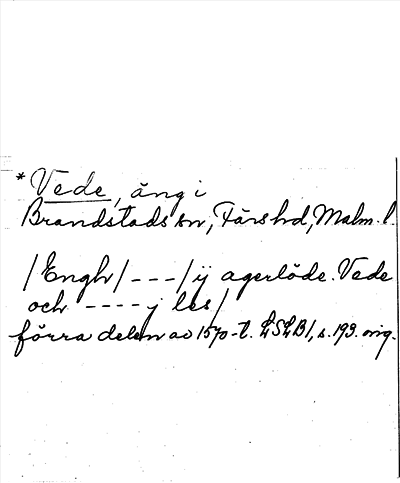 * Vede, äng i
Brandstads sn, Färs hd, Malm. l.
/Engh/ - - - /ij agerlöde. Vede
och - - - - j les/
förra delen av 1570-t. LSLB1, s. 193. orig.